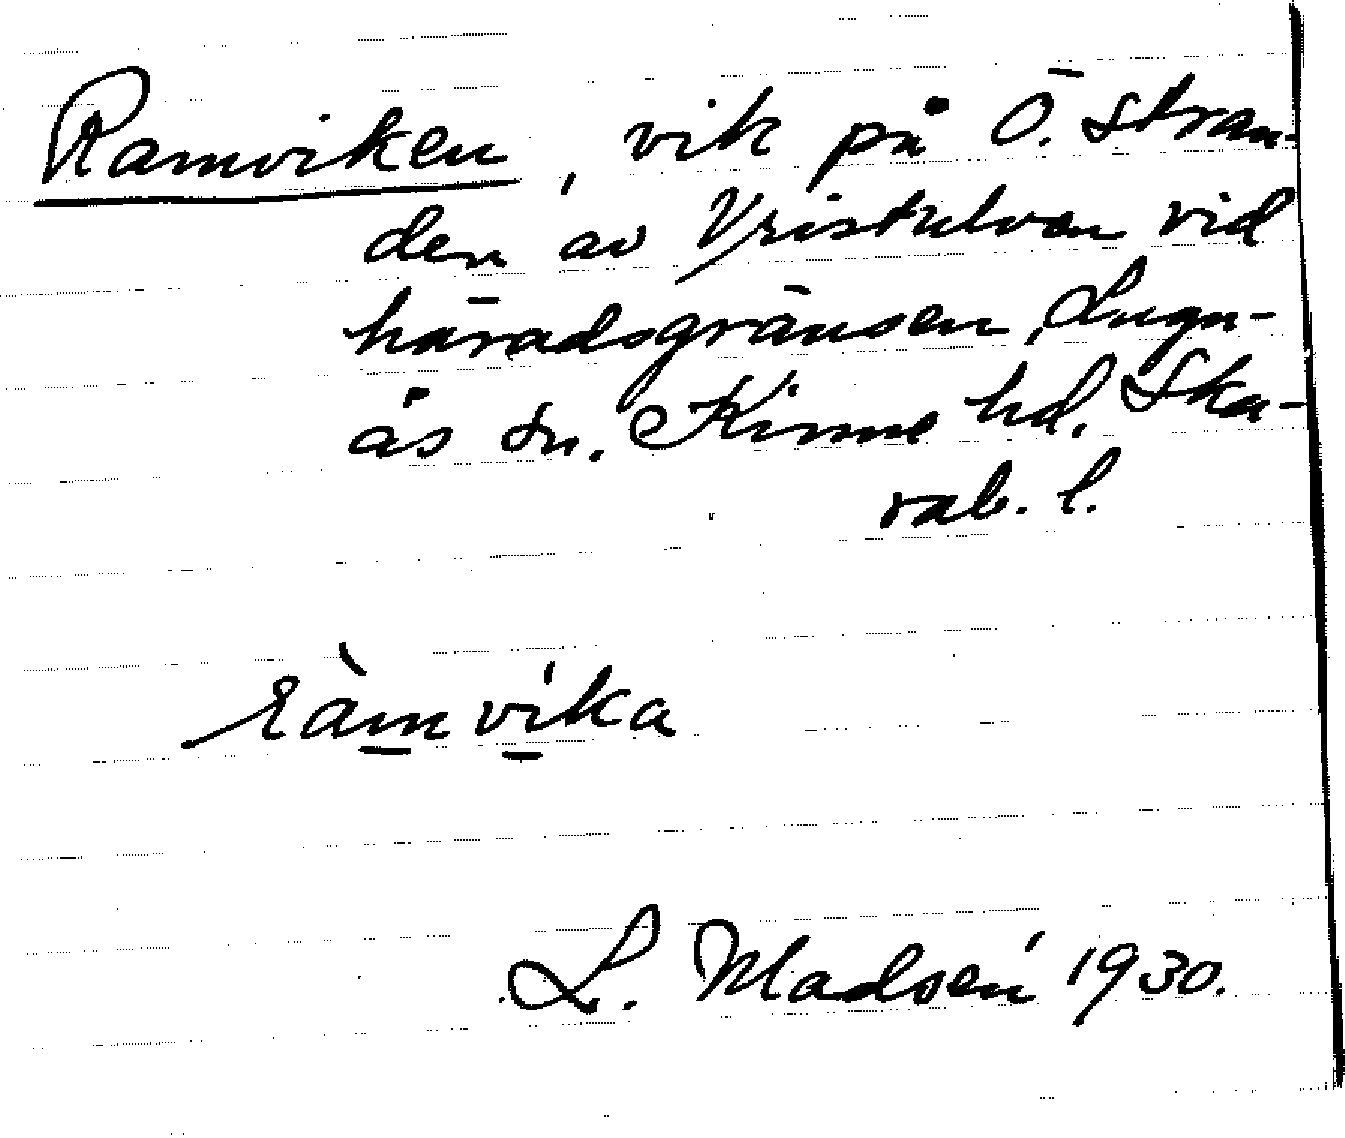 Ramviken, vik på Ö. stran-
den av Vristulven vid
häradsgränsen, Lugn-
ås sn. Kinne hd, Ska-
rab. l.
ràmvíka
L. Madsén 1930.